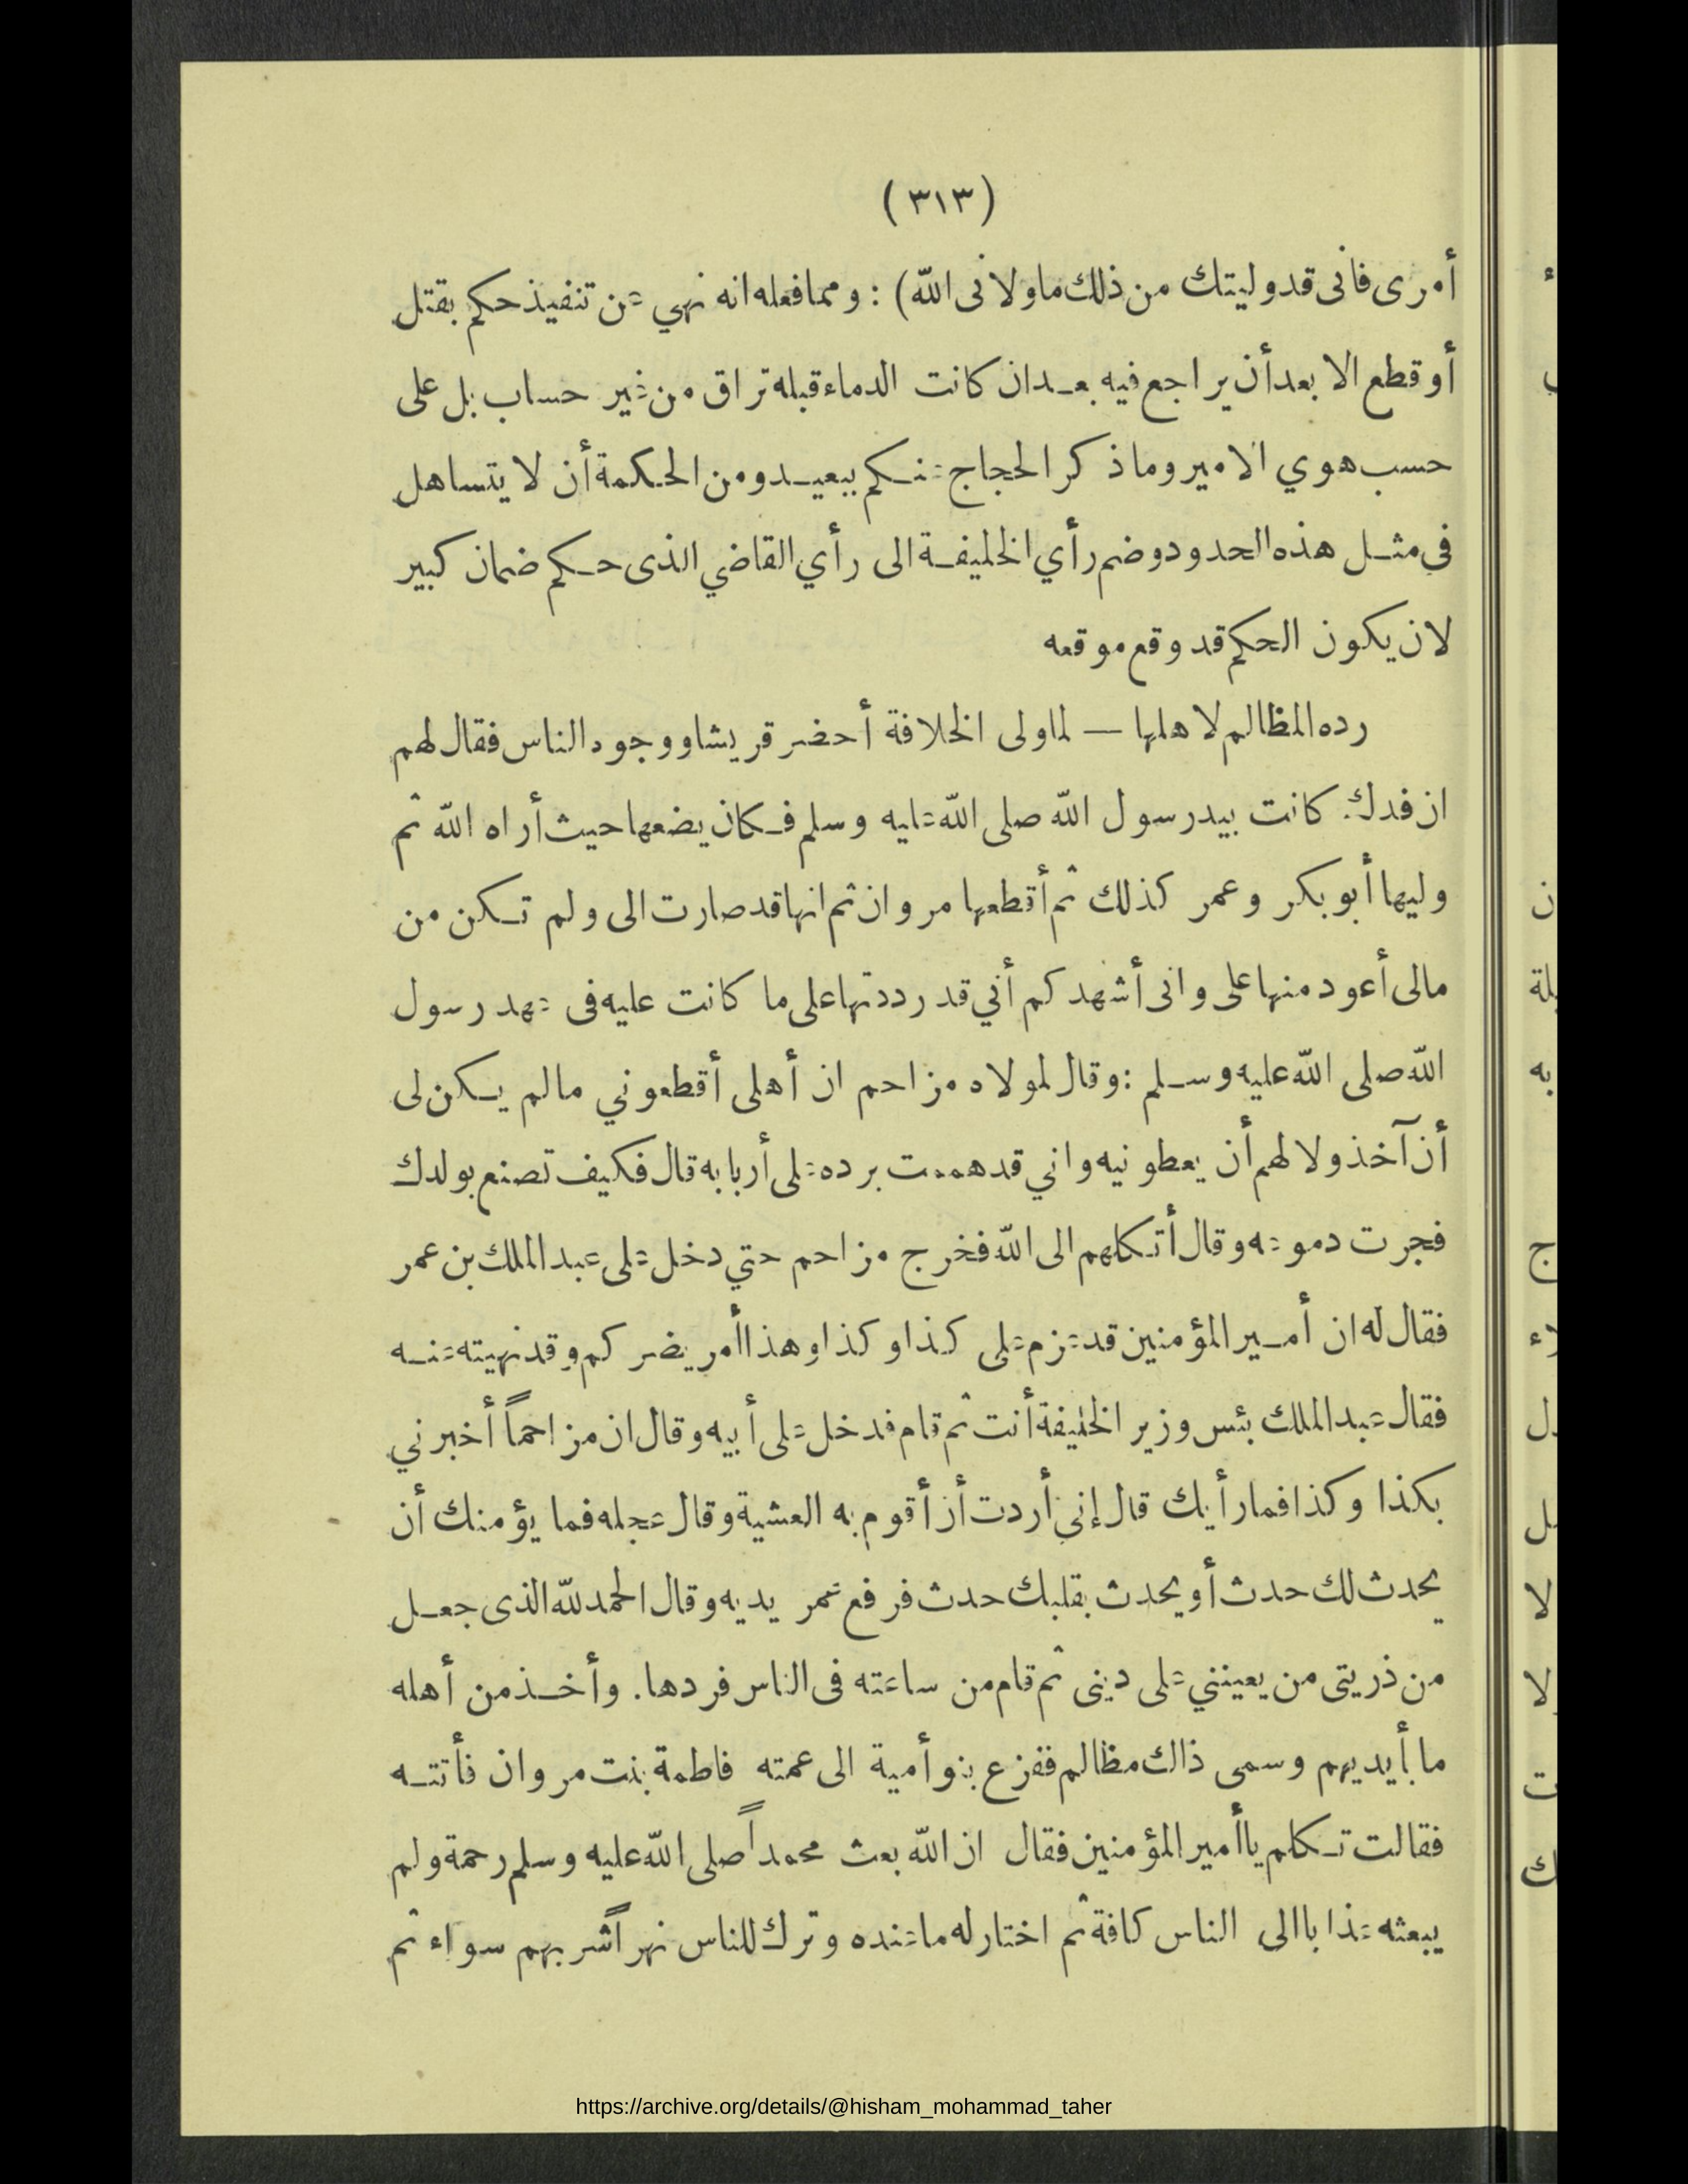 (٣١٣)
أمرى فانى قد وليتك من ذلك ما ولانى الله) : ومما فعله انه نهي عن تنفيذ حكم بقتل
أو قطع الا بعد أن يراجع فيه بعد ان كانت الدماء قبله تراق من غير حساب بل على
حسب هوي الامير وما ذكر الحجاج عنكم ببعيد ومن الحكمة أن لا يتساهل
فى مثل هذه الحدود وضم رأي الخليفة الى رأي القاضي الذى حكم ضمان كبير
لان يكون الحكم قد وقع موقعه
رده المظالم لاهلها — لما ولى الخلافة أحضر قريشا ووجود الناس فقال لهم
ان فدك كانت بيد رسول الله صلى الله عليه وسلم فكان يضعها حيث أراه الله ثم
وليها أبو بكر وعمر كذلك ثم أقطعها مروان ثم انها قد صارت الى ولم تكن من
مالى أعود منها على وانى أشهدكم أني قد رددتها على ما كانت عليه فى عهد رسول
الله صلى الله عليه وسلم : وقال لمولاه مزاحم ان أهلى أقطعوني ما لم يكن لى
أن آخذ ولا لهم أن يعطونيه واني قد هممت برده على أربابه قال فكيف تصنع بولدك
فجرت دموعه وقال أتكلهم الى الله فخرج مزاحم حتي دخل على عبد الملك بن عمر
فقال له ان أمير المؤمنين قد عزم على كذا وكذا وهذا أمر يضركم وقد نهيته عنه
فقال عبد الملك بئس وزير الخليفة أنت ثم قام فدخل على أبيه وقال ان مزاحماً أخبرني
بكذا وكذا فما رأيك قال إني أردت أن أقوم به العشية وقال عجله فما يؤمنك أن
يحدث لك حدث أو يحدث بقلبك حدث فرفع عمر يديه وقال الحمد لله الذى جعل
من ذريتى من يعينني على دينى ثم قام من ساعته فى الناس فردها. وأخذ من أهله
ما بأيديهم وسمى ذلك مظالم ففزع بنو أمية الى عمته فاطمة بنت مروان فأتته
فقالت تكلم يا أمير المؤمنين فقال ان الله بعث محمداً صلى الله عليه وسلم رحمة ولم
يبعثه عذابا الى الناس كافة ثم اختار له ما عنده وترك للناس نهراً شربهم سواء ثم
https://archive.org/details/@hisham_mohammad_taher